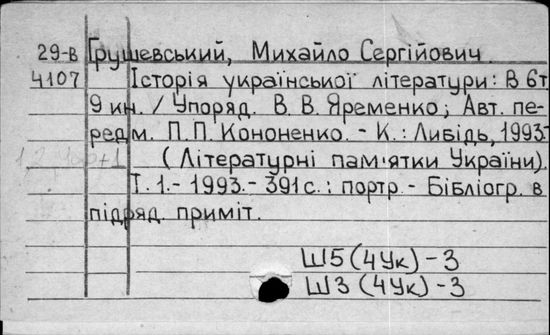 29-В Грушевський, Михайло Сергійович.
4107 Історія української літератури: В 6т
9 кн. / Упоряд. В. В. Яременко; Авт. пе-
редм. П.П. Кононенко. - К.: Либідь, 1993-
(Літературні пам'ятки України).
Т. 1.- 1993.- 391с.: портр.- Бібліогр. в
підряд. приміт.
Ш5(4Ук)-3
Ш3(4Ук)-3